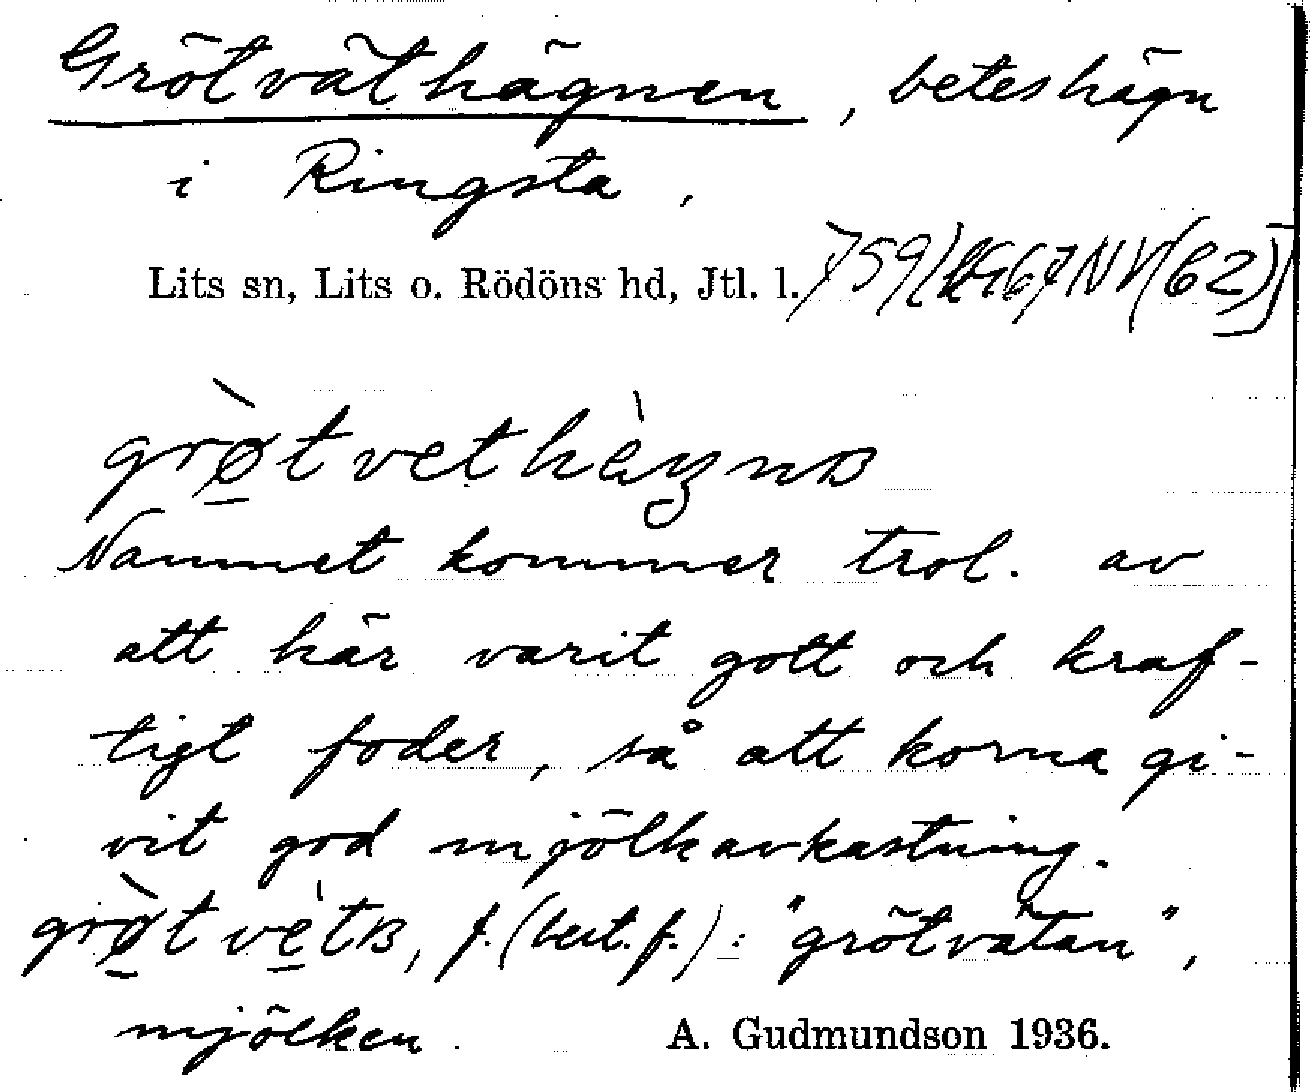 Grötväthägnen, beteshägn
i Ringsta,
Lits sn, Lits o. Rödöns hd, Jtl. l.
Namnet kommer trol. av
att här varit gott och kraf-
tigt foder, så att korna gi-
vit god mjölkavkastning.
f. (best. f.): "grötvätan",
mjölken.
A. Gudmundson 1936.